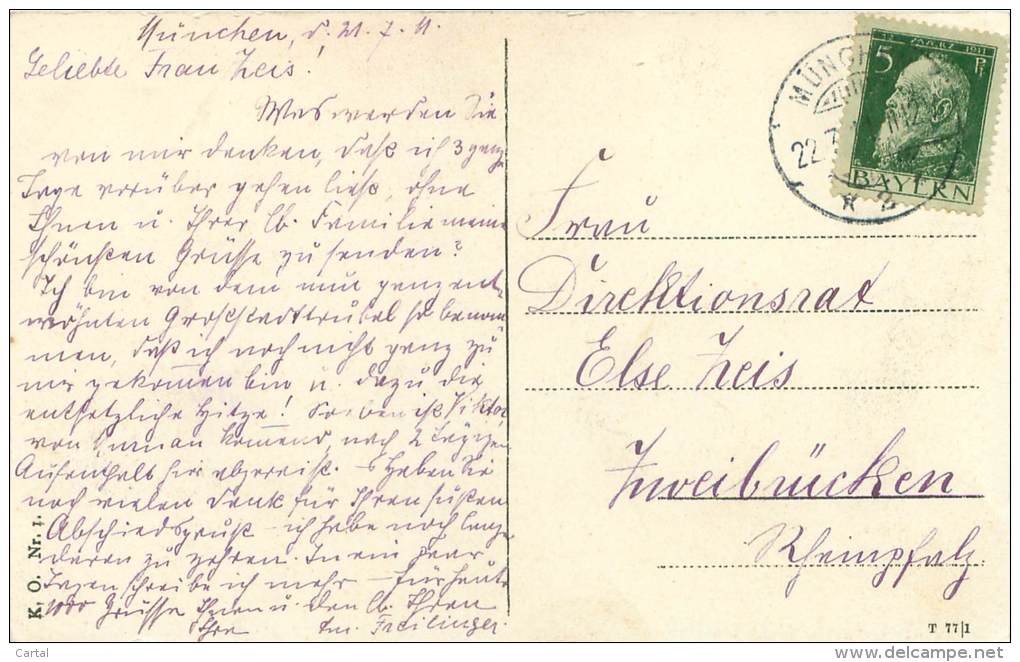 München, d. 21.7.11
Geliebte Frau Zeis!
Was werden Sie
von mir denken, daß ich 3 ganze
Tage vorüber gehen ließ, ohne
Ihnen u. Ihrer lb. Familie meine
schönsten Grüsse zu senden?
Ich bin von dem nun ganz ent-
wöhnten Grossstadttrubel so benom
men, daß ich noch nicht ganz zu
mir gekommen bin u. dazu die
entsetzliche Hitze! Soeben ist Viktor
von kommend, nach 2 tägigen
Aufenthalt hier abgereist. Haben Sie
noch vielen Dank für Ihren süßen
Abschiedsgruß – ich habe noch lang
daran zu zehren. In ein paar
Tagen schreibe ich mehr – für heute
1000 Grüsse Ihnen u. den lb. Ihren
Ihre Freilinger.
K. O. Nr. 1.
12. MÄRZ 1911
5 Pf
BAYERN
MÜNCH
22.7.
Frau
Direktionsrat
Else Zeis
Zweibrücken
Rheinpfalz.
T 77/1
Cartal
www.delcampe.net